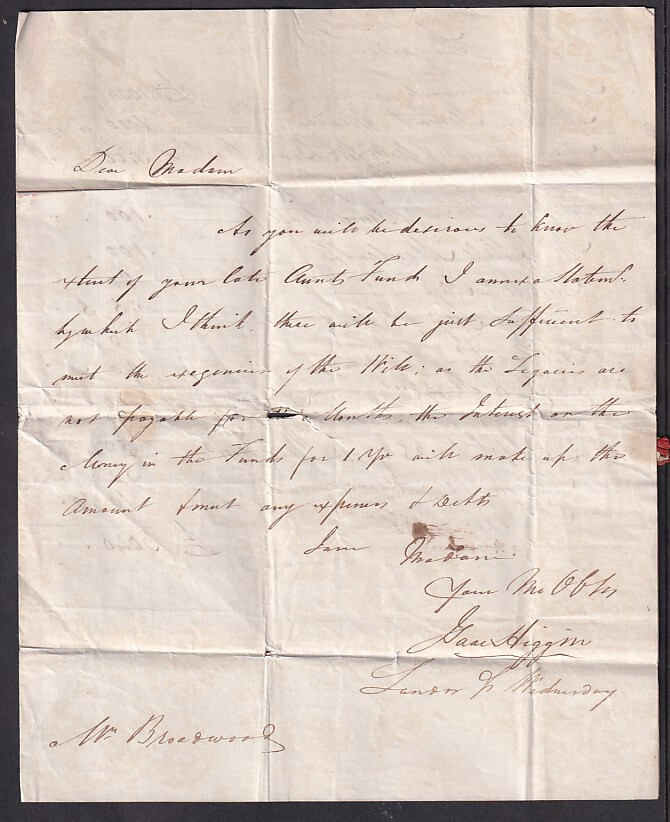 Dear Madam
As you will be desirous to know the
extent of your late Aunts Funds I annex a Statemt.
by which I think there will be just sufficient to
meet the exigencies of the Will; as the Legacies are
not payable for Months the Interest on the
Money in the Funds for 1 Yr will make up the
Amount & meet any expenses & Debts
I am
Madam
Your Mo Ob
Isaac Higgin
Wednesday
Broadwood